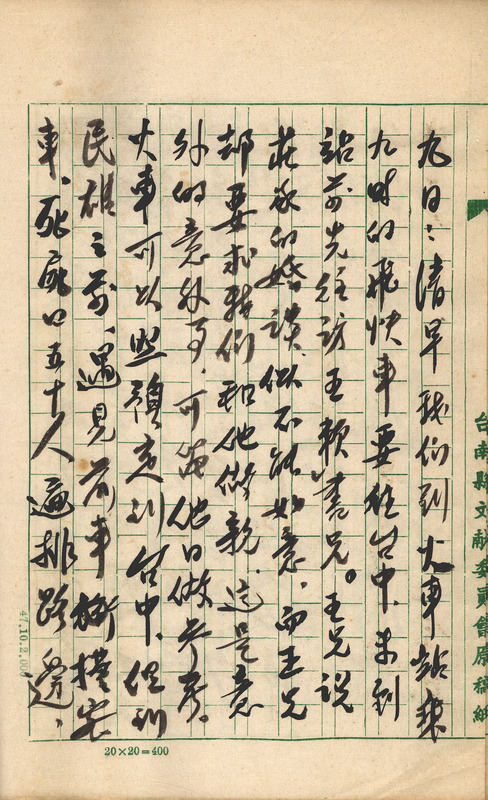 九日：清早我们到火車站乘
九时的飛快車要往台中，未到
站前先往訪王賴書兄。王兄说
莊家的婚談，似不能如意，而王兄
却要求我们和他做親，這是意
外的意外事，可留他日做参考。
火車可以照預定到台中，但到
民雄之前，遇見前車衝撞客
車，死者五十人，遍排路邊，
台南縣文献委員會原稿紙
47.10.2.00
20×20=400